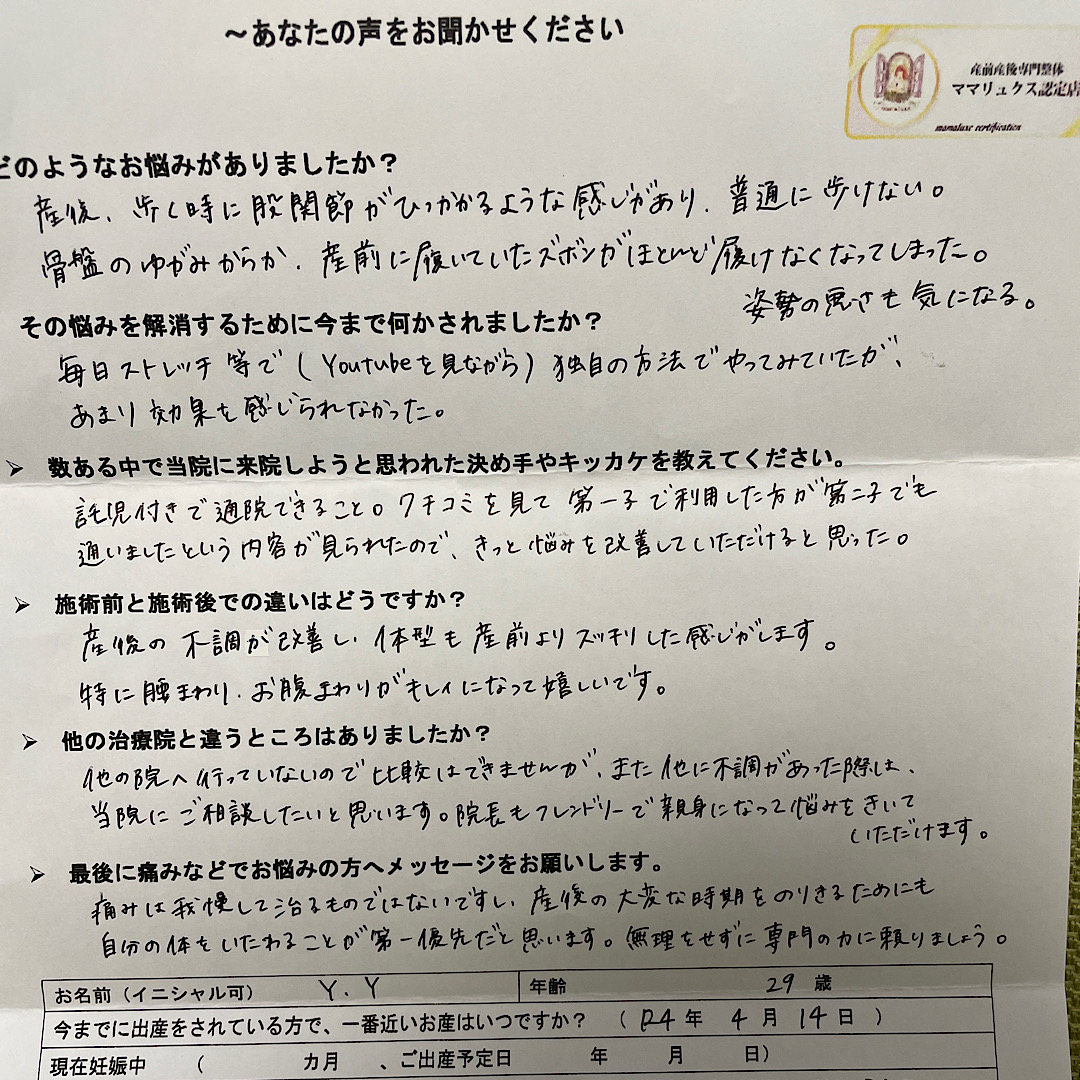 ～あなたの声をお聞かせください
産前産後専門整体
ママリュクス認定店
mamaluxe certification
どのようなお悩みがありましたか？
産後、歩く時に股関節がひっかかるような感じがあり、普通に歩けない。
骨盤のゆがみからか、産前に履いていたズボンがほとんど履けなくなってしまった。
姿勢の悪さも気になる。
その悩みを解消するために今まで何かされましたか？
毎日ストレッチ等で（Youtubeを見ながら）独自の方法でやってみていたが、
あまり効果を感じられなかった。
➢ 数ある中で当院に来院しようと思われた決め手やキッカケを教えてください。
託児付きで通院できること。クチコミを見て第一子で利用した方が第二子でも
通いましたという内容が見られたので、きっと悩みを改善していただけると思った。
➢ 施術前と施術後での違いはどうですか？
産後の不調が改善し、体型も産前よりスッキリした感じがします。
特に腰まわり、お腹まわりがキレイになって嬉しいです。
➢ 他の治療院と違うところはありましたか？
他の院へ行っていないので比較はできませんが、また他に不調があった際は、
当院にご相談したいと思います。院長もフレンドリーで親身になって悩みをきいて
いただけます。
➢ 最後に痛みなどでお悩みの方へメッセージをお願いします。
痛みは我慢して治るものではないですし、産後の大変な時期をのりきるためにも
自分の体をいたわることが第一優先だと思います。無理をせずに専門の力に頼りましょう。
お名前（イニシャル可） Y.Y 年齢 29 歳
今までに出産をされている方で、一番近いお産はいつですか？ （ R4 年 4 月 14 日 ）
現在妊娠中 （ カ月 、ご出産予定日 年 月 日）